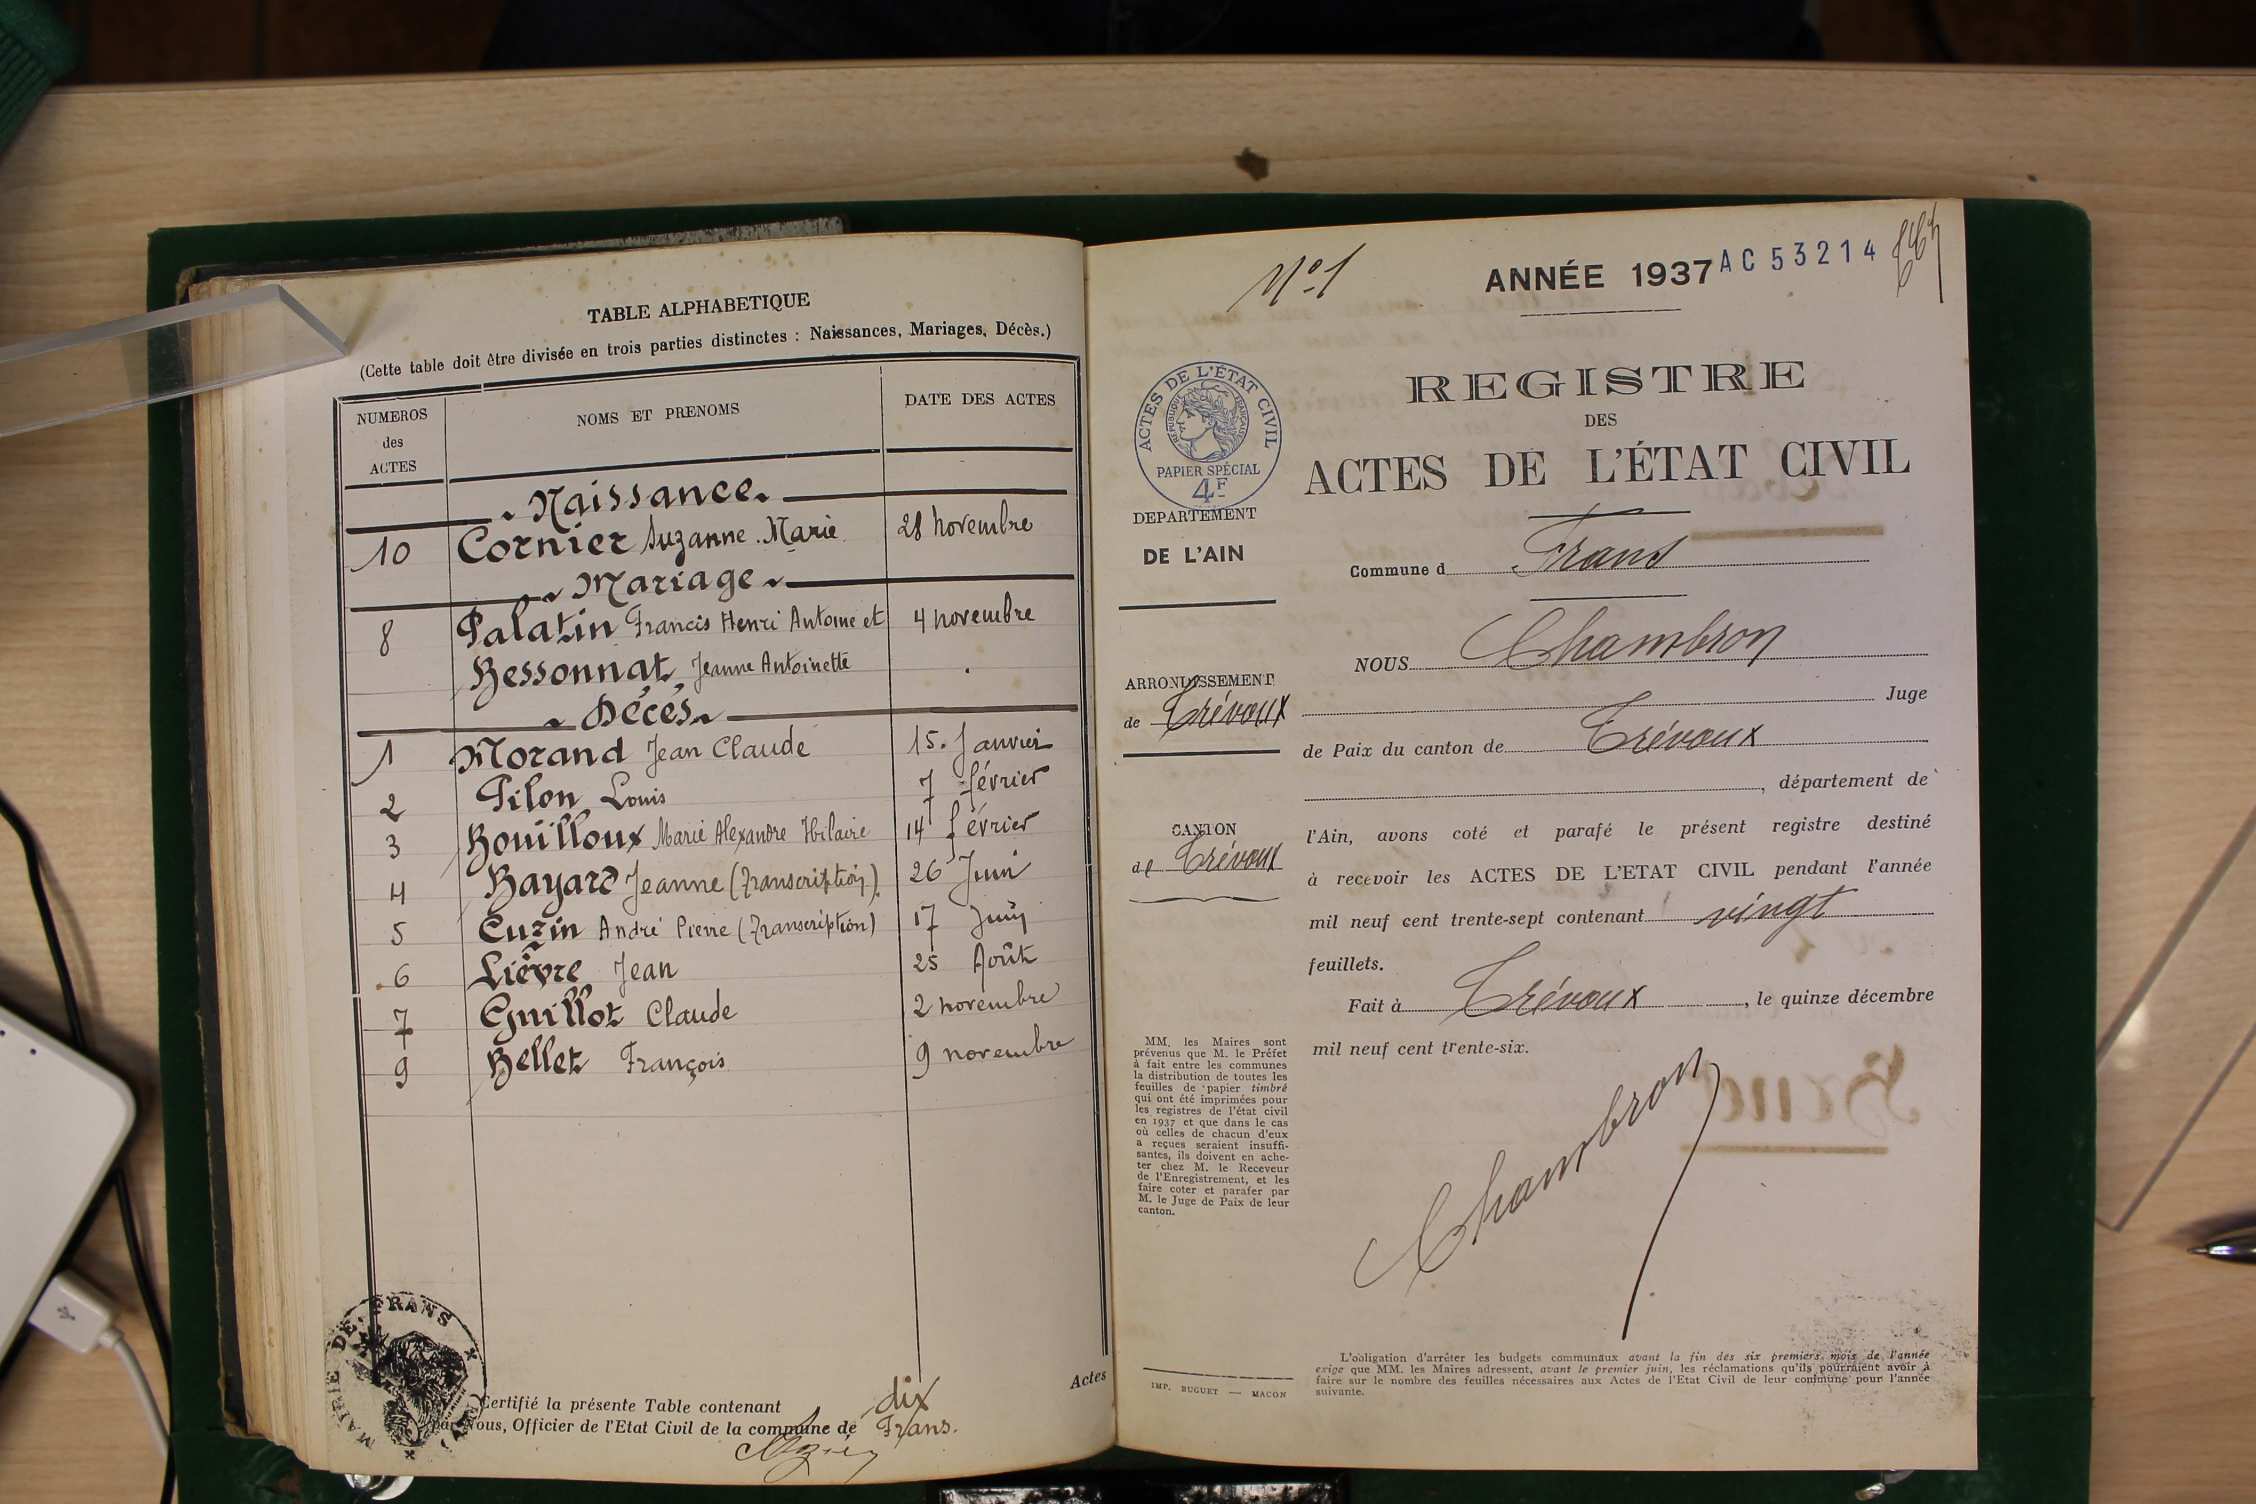 TABLE ALPHABETIQUE
(Cette table doit être divisée en trois parties distinctes : Naissances, Mariages, Décès.)
NUMEROS des ACTES
NOMS ET PRENOMS
DATE DES ACTES
Naissance
10 Cornier Suzanne. Marie 28 novembre
Mariage
8 Palatin Francis Henri Antoine et 4 novembre
Bessonnat Jeanne Antoinette
Décès
1 Morand Jean Claude 15. Janvier
2 Pilon Louis 7 février
3 Bouilloux Marie Alexandre Hilaire 14 février
4 Bayard Jeanne (Transcription) 26 Juin
5 Cuzin André Pierre (Transcription) 17 Juin
6 Lièvre Jean 25 Août
7 Guillot Claude 2 novembre
9 Bellet François 9 novembre
Certifié la présente Table contenant dix Actes
par Nous, Officier de l'Etat Civil de la commune de Frans.
MAIRIE DE FRANS
(AIN)
N° 1
ANNÉE 1937
AC 53214
REGISTRE
DES
ACTES DE L'ÉTAT CIVIL
ACTES DE L'ÉTAT CIVIL
RÉPUBLIQUE FRANÇAISE
PAPIER SPÉCIAL
4F
DEPARTEMENT
DE L'AIN
ARRONDISSEMENT
de Trévoux
CANTON
de Trévoux
Commune d Frans
NOUS Chambron
Juge
de Paix du canton de Trévoux
, département de
l'Ain, avons coté et parafé le présent registre destiné
à recevoir les ACTES DE L'ETAT CIVIL pendant l'année
mil neuf cent trente-sept contenant vingt
feuillets.
Fait à Trévoux, le quinze décembre
mil neuf cent trente-six.
Chambron
MM. les Maires sont
prévenus que M. le Préfet
à fait entre les communes
la distribution de toutes les
feuilles de papier timbré
qui ont été imprimées pour
les registres de l'état civil
en 1937 et que dans le cas
où celles de chacun d'eux
a reçues seraient insuffi-
santes, ils doivent en ache-
ter chez M. le Receveur
de l'Enregistrement, et les
faire coter et parafer par
M. le Juge de Paix de leur
canton.
IMP. BUGUET — MACON
L'obligation d'arrêter les budgets communaux avant la fin des six premiers mois de l'année
exige que MM. les Maires adressent, avant le premier juin, les réclamations qu'ils pourraient avoir à
faire sur le nombre des feuilles nécessaires aux Actes de l'Etat Civil de leur commune pour l'année
suivante.